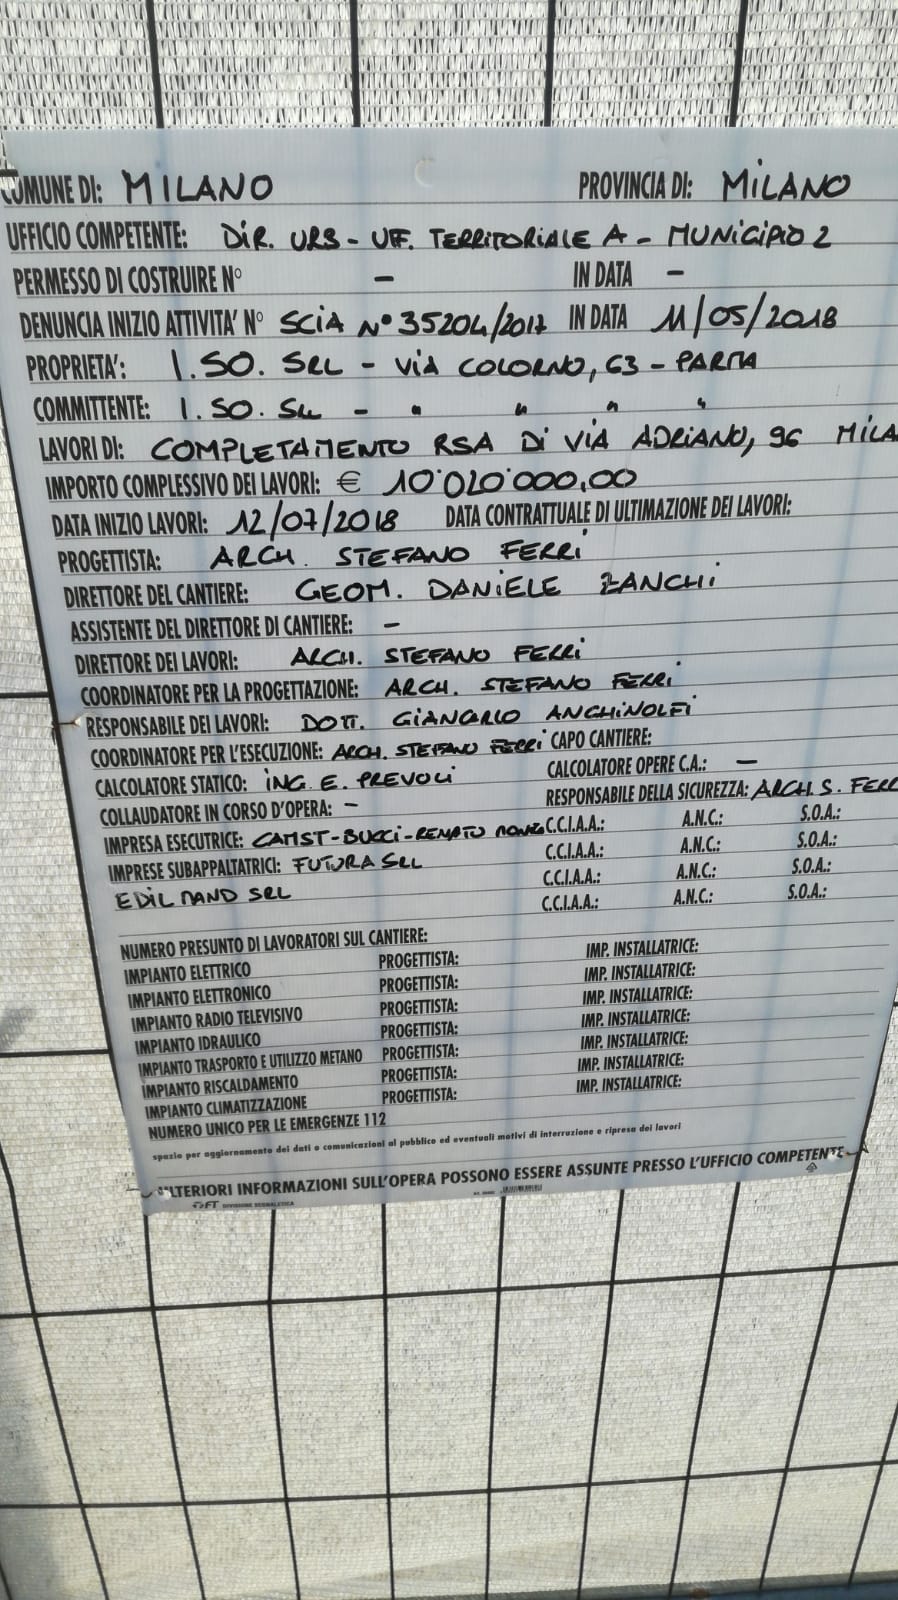 COMUNE DI: MILANO PROVINCIA DI: MILANO
UFFICIO COMPETENTE: DIR. URB - UFF. TERRITORIALE A - MUNICIPIO 2
PERMESSO DI COSTRUIRE N° - IN DATA -
DENUNCIA INIZIO ATTIVITA' N° SCIA N° 35204/2017 IN DATA 11/05/2018
PROPRIETA': I.SO. SRL - VIA COLORNO, 63 - PARMA
COMMITTENTE: I.SO. SRL - " " " "
LAVORI DI: COMPLETAMENTO RSA DI VIA ADRIANO, 96 MILA
IMPORTO COMPLESSIVO DEI LAVORI: € 10'020'000,00
DATA INIZIO LAVORI: 12/07/2018 DATA CONTRATTUALE DI ULTIMAZIONE DEI LAVORI:
PROGETTISTA: ARCH. STEFANO FERRI
DIRETTORE DEL CANTIERE: GEOM. DANIELE ZANCHI
ASSISTENTE DEL DIRETTORE DI CANTIERE: -
DIRETTORE DEI LAVORI: ARCH. STEFANO FERRI
COORDINATORE PER LA PROGETTAZIONE: ARCH. STEFANO FERRI
RESPONSABILE DEI LAVORI: DOTT. GIANCARLO ANGHINOLFI
COORDINATORE PER L'ESECUZIONE: ARCH. STEFANO FERRI CAPO CANTIERE:
CALCOLATORE STATICO: ING. E. PREVOLI CALCOLATORE OPERE C.A.: -
COLLAUDATORE IN CORSO D'OPERA: - RESPONSABILE DELLA SICUREZZA: ARCH. S. FERR
IMPRESA ESECUTRICE: CAMST-BUCCI-RENATO C.C.I.A.A.: A.N.C.: S.O.A.:
IMPRESE SUBAPPALTATRICI: FUTURA SRL C.C.I.A.A.: A.N.C.: S.O.A.:
EDIL MAND SRL C.C.I.A.A.: A.N.C.: S.O.A.:
C.C.I.A.A.: A.N.C.: S.O.A.:
NUMERO PRESUNTO DI LAVORATORI SUL CANTIERE:
IMPIANTO ELETTRICO PROGETTISTA: IMP. INSTALLATRICE:
IMPIANTO ELETTRONICO PROGETTISTA: IMP. INSTALLATRICE:
IMPIANTO RADIO TELEVISIVO PROGETTISTA: IMP. INSTALLATRICE:
IMPIANTO IDRAULICO PROGETTISTA: IMP. INSTALLATRICE:
IMPIANTO TRASPORTO E UTILIZZO METANO PROGETTISTA: IMP. INSTALLATRICE:
IMPIANTO RISCALDAMENTO PROGETTISTA: IMP. INSTALLATRICE:
IMPIANTO CLIMATIZZAZIONE PROGETTISTA: IMP. INSTALLATRICE:
NUMERO UNICO PER LE EMERGENZE 112
spazio per aggiornamento dei dati o comunicazioni al pubblico ed eventuali motivi di interruzione e ripresa dei lavori
ULTERIORI INFORMAZIONI SULL'OPERA POSSONO ESSERE ASSUNTE PRESSO L'UFFICIO COMPETENTE
FT DIVISIONE SEGNALETICA